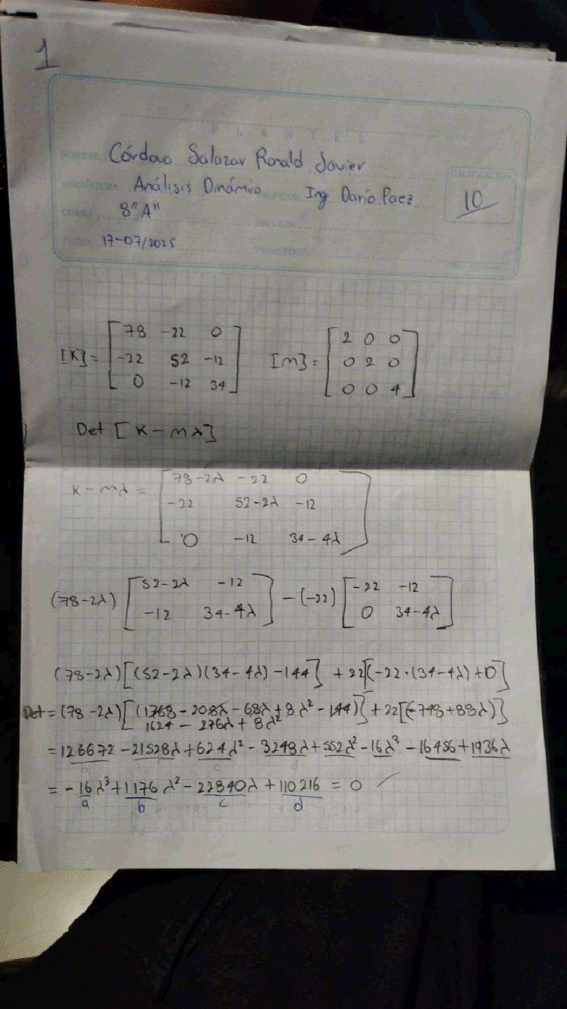 1
PLANTEL
NOMBRE Córdova Salazar Ronald Javier
CALIFICACIÓN
ASIGNATURA Análisis Dinámico Ing Darío Paez
10
CURSO 8"A"
FECHA 17-07/2025
[K]= [78 -22 0 [M]= [2 0 0
-22 52 -12 0 2 0
0 -12 34] 0 0 4]
Det [K-mλ]
K-mλ = [78-2λ -22 0
-22 52-2λ -12
0 -12 34-4λ]
(78-2λ) [52-2λ -12 -(-22) [-22 -12
-12 34-4λ] 0 34-4λ]
(78-2λ)[(52-2λ)(34-4λ)-144] +22[(-22·(34-4λ)+0]
Det = (78-2λ)[(1768-208λ-68λ+8λ²-144)]+22[(-748+88λ)]
1624 - 276λ + 8λ²
= 126672 -21528λ+624λ²-3248λ+552λ²-16λ³-16456+1936λ
= -16λ³+1176λ²-22840λ+110216 = 0
a b c d